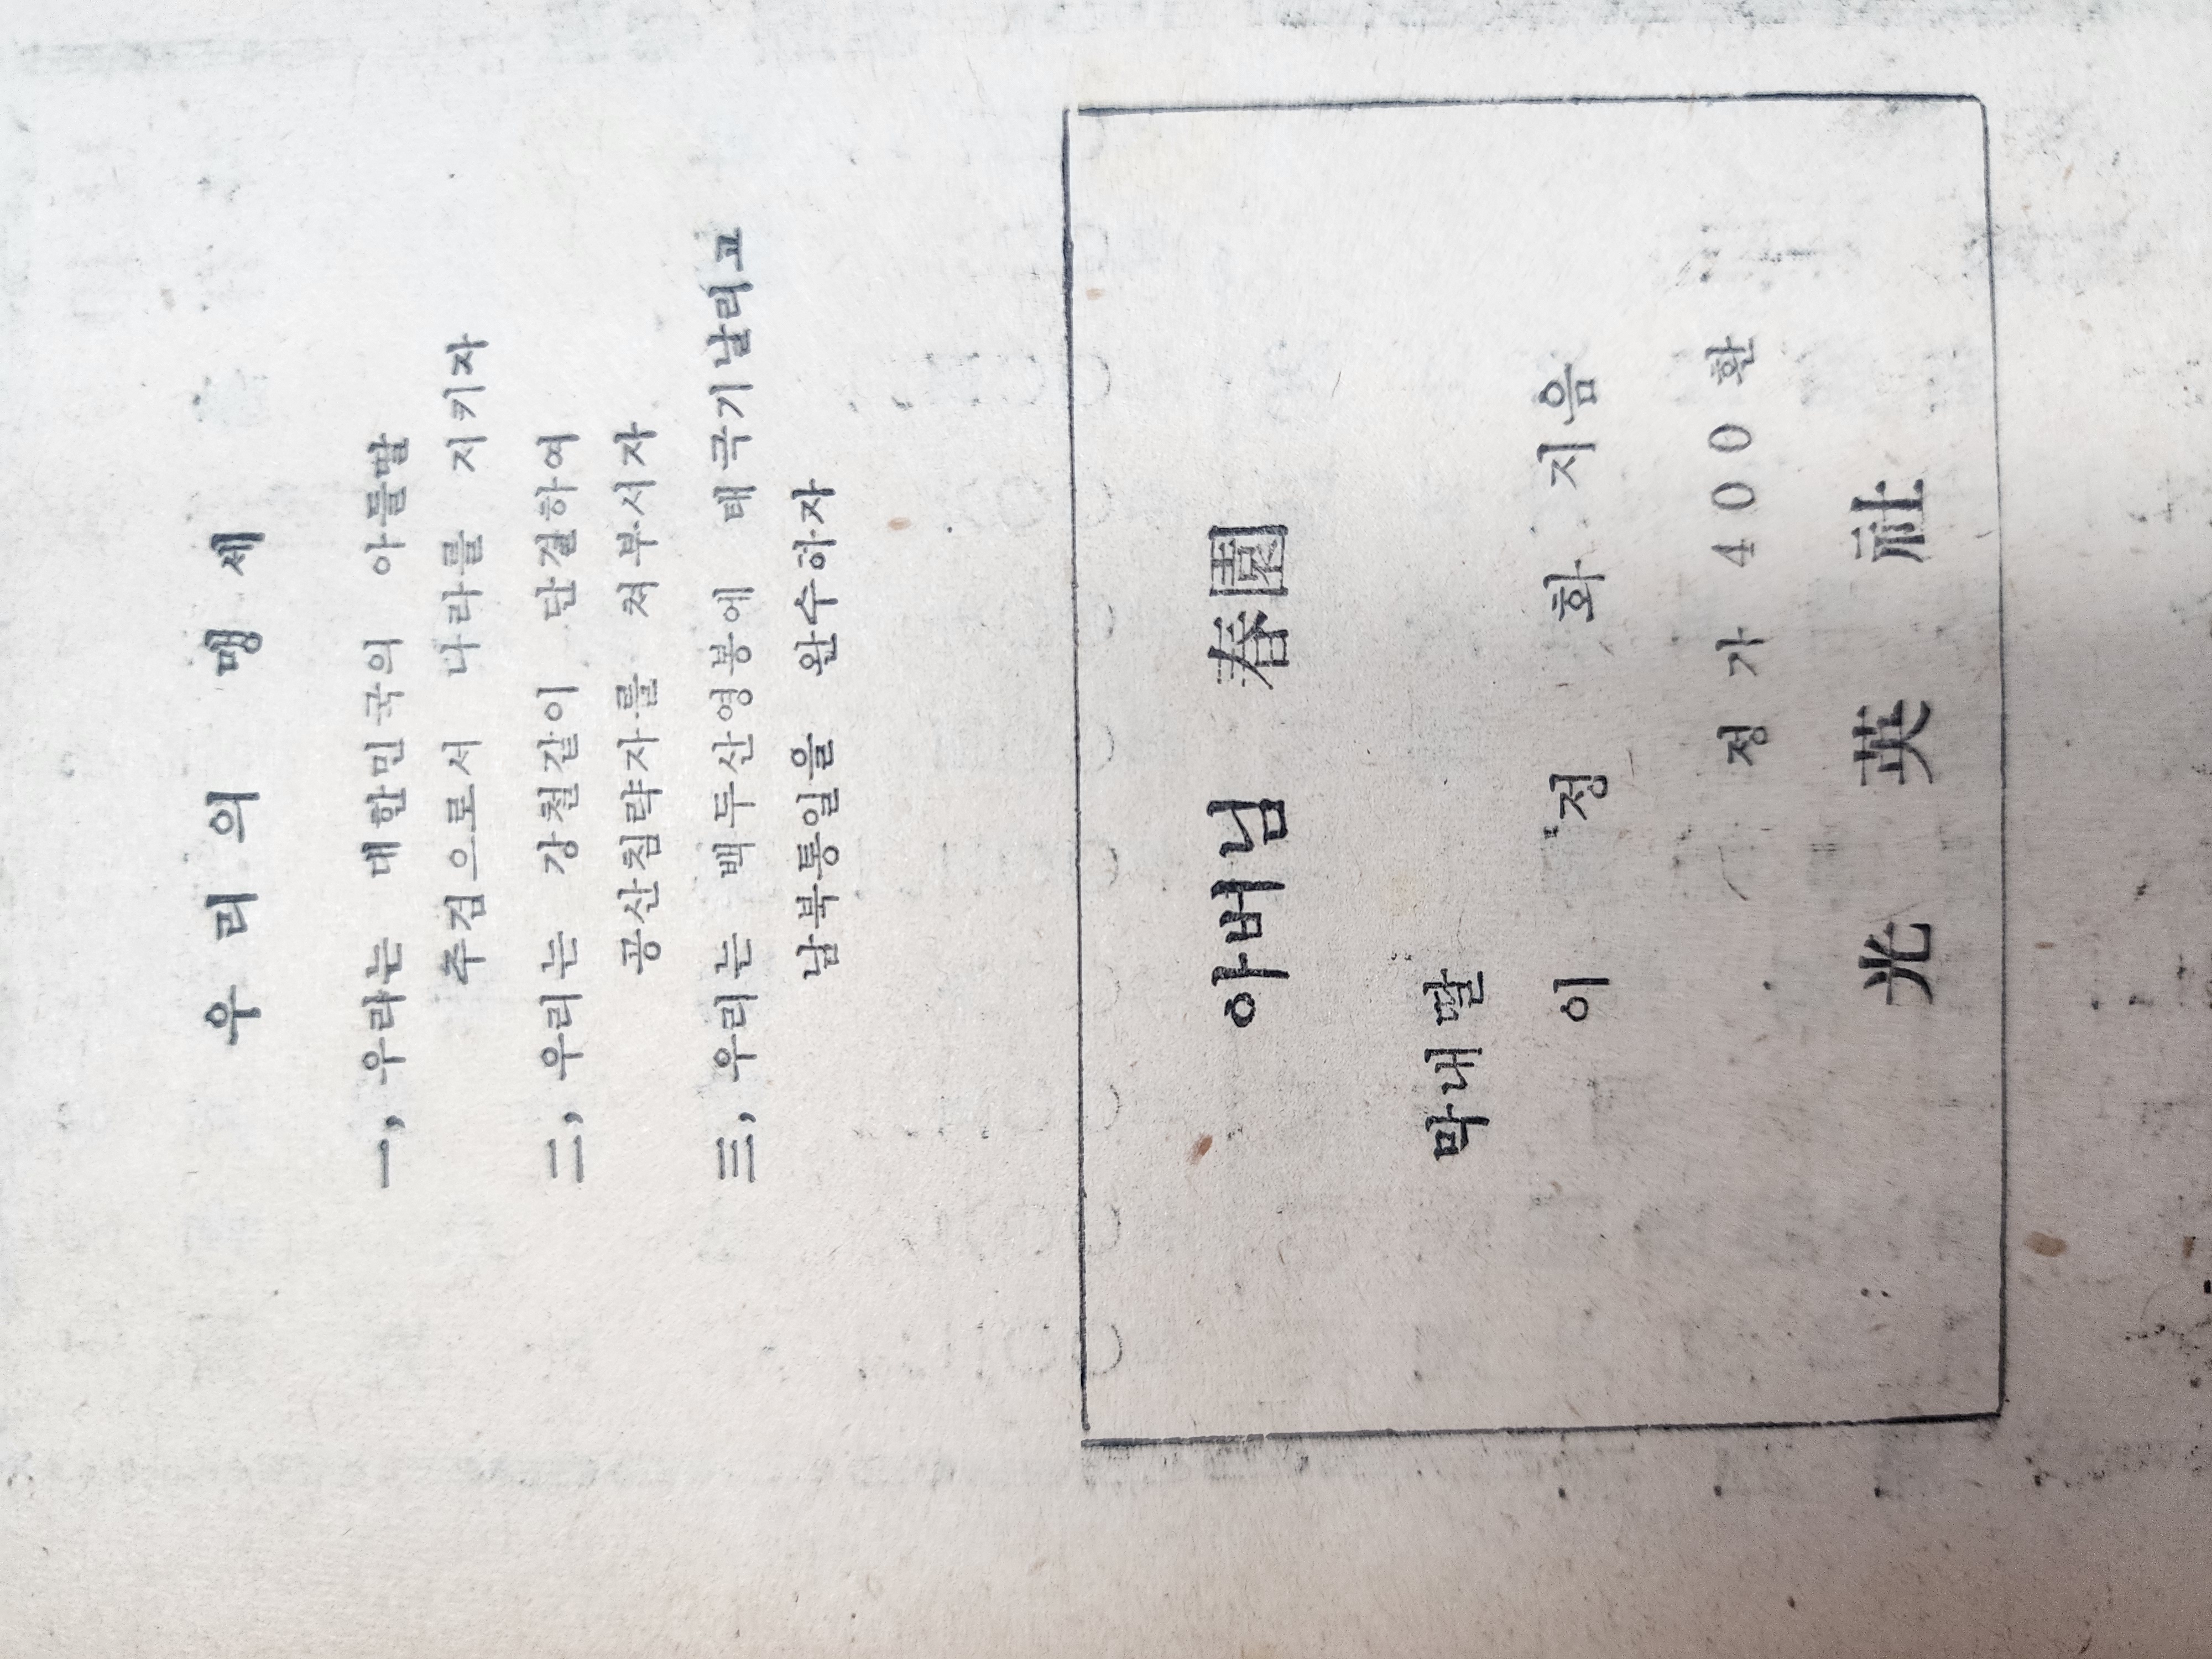 우리의 맹세
一, 우리는 대한민국의 아들딸
추검으로서 나라를 지키자
二, 우리는 강철같이 단결하여
공산침략자를 쳐부시자
三, 우리는 백두산영봉에 태극기날리고
남북통일을 완수하자
아버님 春園
막내딸
이 정 화 지음
정가 400환
光英社